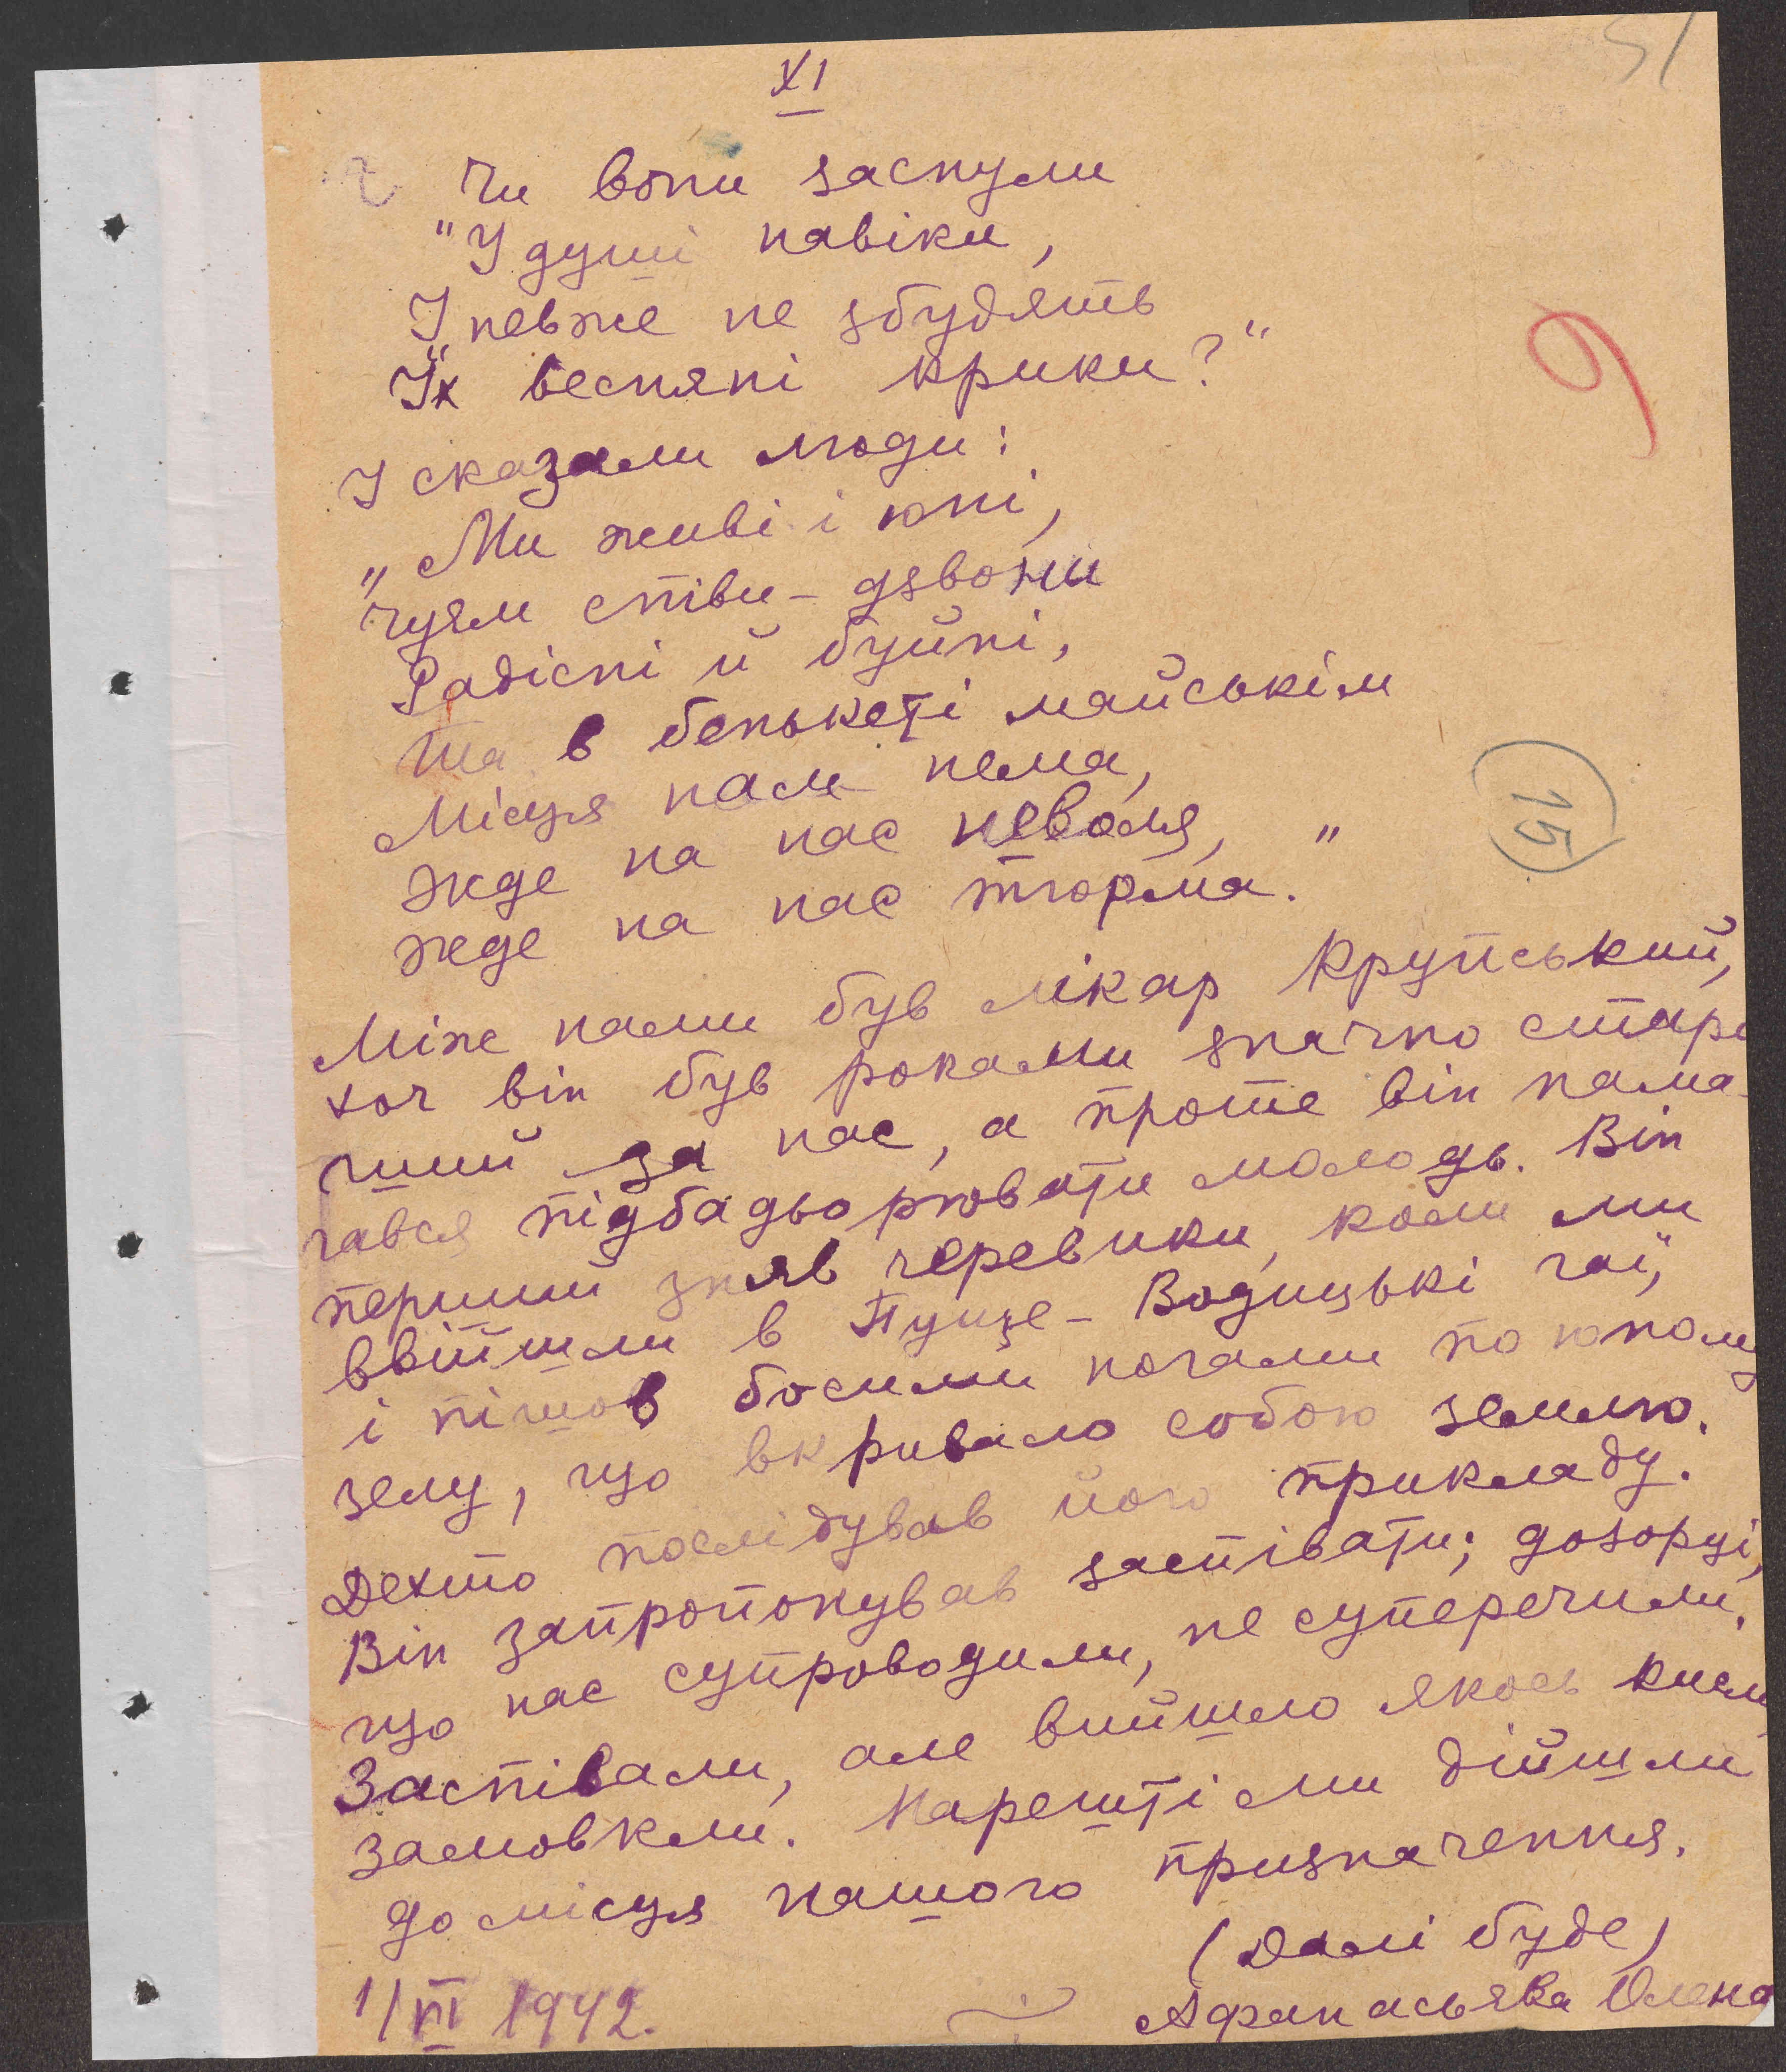 51
XI
Чи вони заснули
"У душі навіки,
І невже не збудять
"Їх весняні крики?"
І сказали люди:
"Ми живі і юні,
Чуєм співи-дзвони
Радісні й буйні,
Та в бенькеті майськім
Місця нам нема,
Жде на нас неволя, "
Жде на нас тюрма.
9
15
Між нами був лікар Крупський,
хоч він був роками значно старі
чий за нас, а проте він нама-
гався підбадьорювати молодь. Він
перший зняв черевики, коли ми
ввійшли в Пуще-Водицькі гаї,
і пішов босими ногами по юному
зелу, що вкривало собою землю.
Дехто послідував його прикладу.
Він запропонував заспівати; дозорці,
що нас супроводили, не суперечили.
Заспівали, але вийшло якось кисло,
замовкли. Нарешті ми дійшли
до місця нашого призначення.
(Далі буде)
1/VI 1942.
Афанасьєва Олена